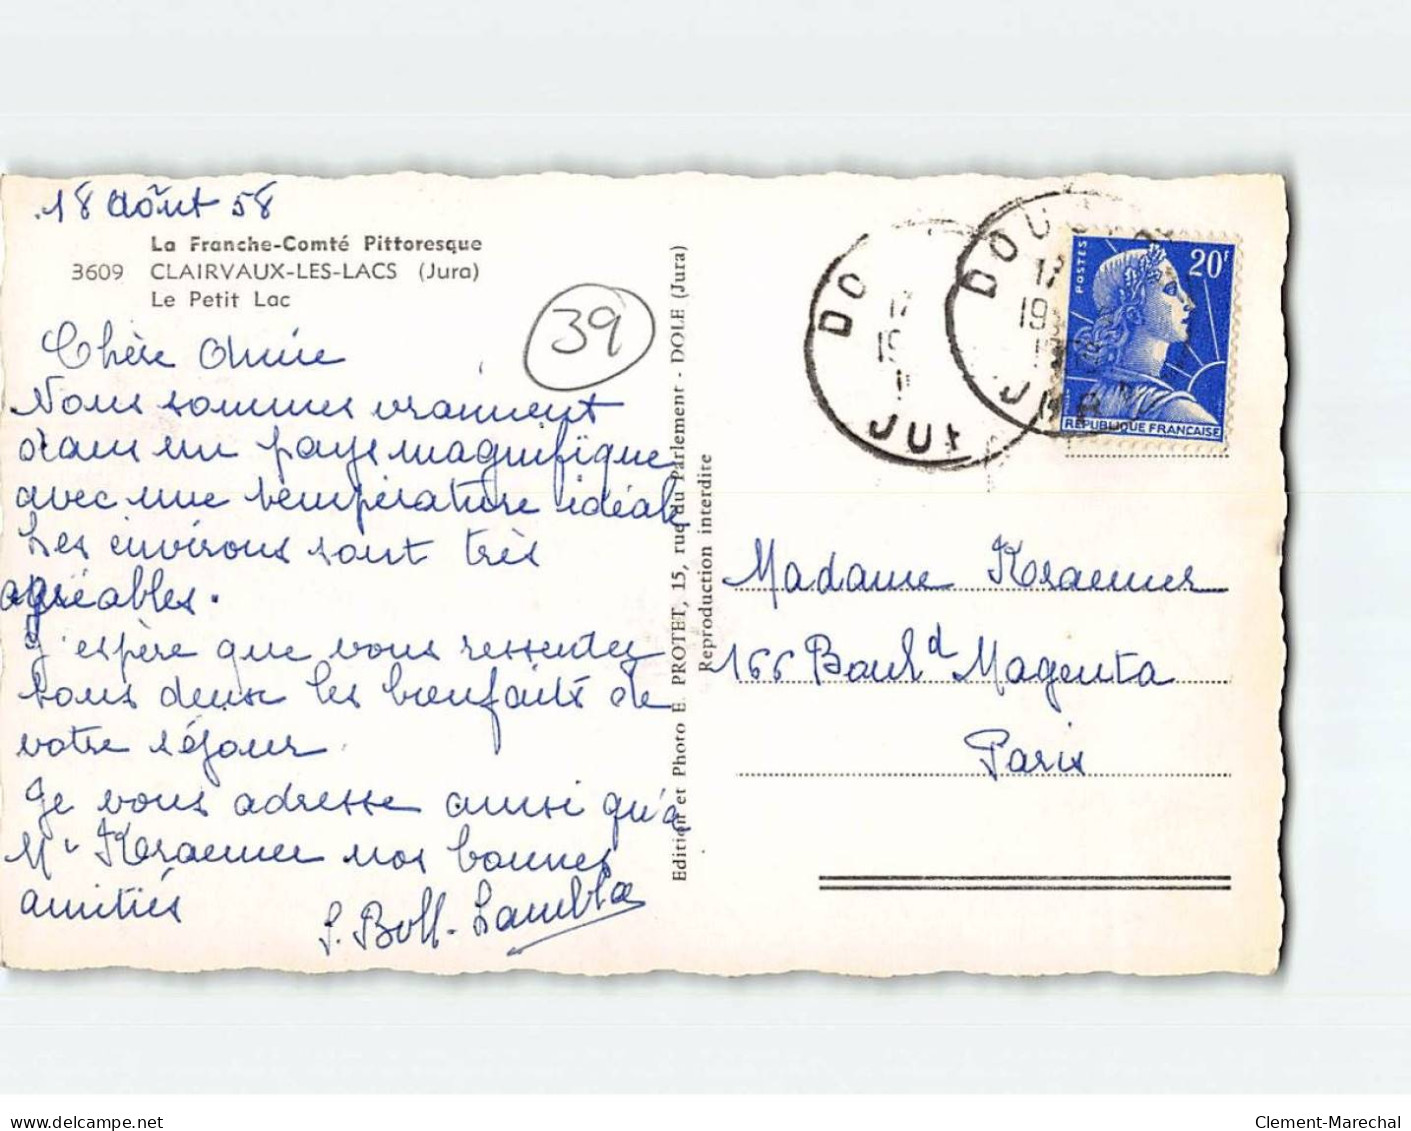 18 Août 58
La Franche-Comté Pittoresque
3609 CLAIRVAUX-LES-LACS (Jura)
Le Petit Lac
39
Chère Amie
Nous sommes vraiment
dans un pays magnifique
avec une température idéale
Les environs sont très
agréables.
J'espère que vous ressentez
tous deux les bienfaits de
votre séjour
Je vous adresse ainsi qu'à
Mr Kraemer nos bonnes
amitiés
Edition et Photo E. PROTET, 15, rue du Parlement - DOLE (Jura)
Reproduction interdite
DO
17
19
JU
DOU
17
19
JURA
POSTES
20F
REPUBLIQUE FRANCAISE
Madame Kraemer
166 Boul d Magenta
Paris
Clement-Marechal
delcampe.net